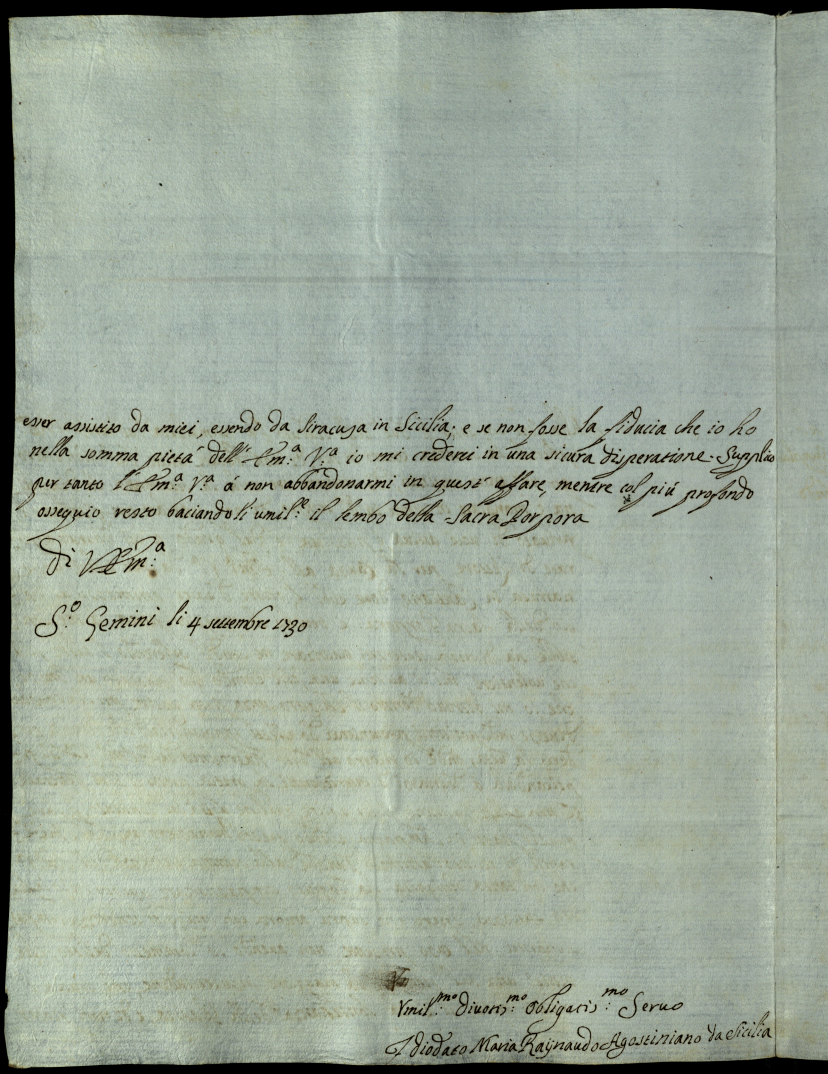 esser assistito da miei, essendo da Siracusa in Sicilia; e se non fosse la fiducia che io ho
nella somma pietà dell' Em:ª V:ª io mi crederei in una sicura disperatione. Supplico
per tanto l'Em:ª V:ª à non abbandonarmi in quest' affare, mentre col più profondo
ossequio resto baciandoli umil:ᵉ il lembo della Sacra Porpora
di V Em:ª
S:º Gemini li 4 settembre 1730
Vmil:ᵐº divotis:ᵐº obligatis:ᵐº Seruo
diodato Maria Raynaudo Agostiniano da Sicilia